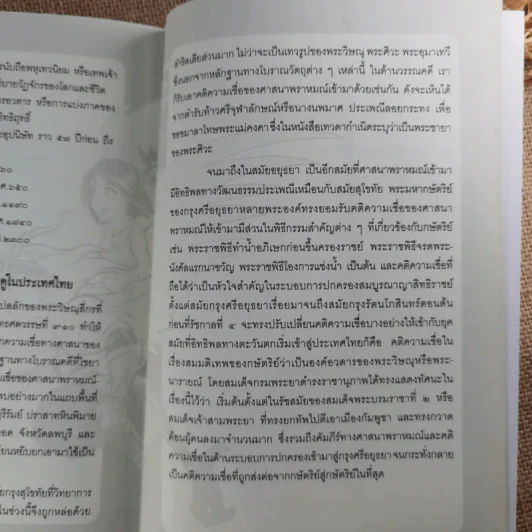 รนับถือพหุเทวนิยม หรือเทพเจ้า
บายวัฏจักรของโลกและชีวิต
รอวตาร หรือการแบ่งภาคของ
อิทธิฤทธิ์
อุปนิษัท ราว ๕๘ ปีก่อน ถึง
๖๐
ศ.๖๕๐
.๑๑๙๐
ศ.๑๘๔๐
.๒๓๐๐
ดูในประเทศไทย
ปสลักของพระวิษณุสี่กรที่
ทธศตวรรษที่ ๙-๑๐ ทำให้
ความเชื่อทางศาสนาของ
ฐานทางโบราณคดีที่ไชยา
ชื่อของศาสนาพราหมณ์
พบอย่างมากในแถบพื้นที่
รีรัมย์ ปราสาทหินพิมาย
อด จังหวัดลพบุรี และ
ขียนหยิบยกเอามาใช้เป็น
ยกรุงสุโขทัยที่วิทยาการ
ในช่วงนี้จึงถูกหล่อด้วย
สำริดเสียส่วนมาก ไม่ว่าจะเป็นเทวรูปของพระวิษณุ พระศิวะ พระอุมาเทวี
ซึ่งนอกจากหลักฐานทางโบราณวัตถุต่าง ๆ เหล่านี้ ในด้านวรรณคดี เรา
ก็รับเอาคติความเชื่อของศาสนาพราหมณ์เข้ามาด้วยเช่นกัน ดังจะเห็นได้
จากตำรับท้าวศรีจุฬาลักษณ์หรือนางนพมาศ ประเพณีลอยกระทง เพื่อ
ขอขมาลาโทษพระแม่คงคา ซึ่งในหนังสือเทวดากำเนิดระบุว่าเป็นพระชายา
ของพระศิวะ
จนมาถึงในสมัยอยุธยา เป็นอีกสมัยที่ศาสนาพราหมณ์เข้ามา
มีอิทธิพลทางวัฒนธรรมประเพณีเหมือนกับสมัยสุโขทัย พระมหากษัตริย์
ของกรุงศรีอยุธยาหลายพระองค์ทรงยอมรับคติความเชื่อของศาสนา
พราหมณ์ให้เข้ามามีส่วนในพิธีกรรมสำคัญต่าง ๆ ที่เกี่ยวข้องกับกษัตริย์
เช่น พระราชพิธีทำน้ำอภิเษกก่อนขึ้นครองราชย์ พระราชพิธีจรดพระ-
นังคัลแรกนาขวัญ พระราชพิธีโองการแช่งน้ำ เป็นต้น และคติความเชื่อที่
ถือได้ว่าเป็นหัวใจสำคัญในระบอบการปกครองสมบูรณาญาสิทธิราชย์
ตั้งแต่สมัยกรุงศรีอยุธยาเรื่อยมาจนถึงสมัยกรุงรัตนโกสินทร์ตอนต้น
ก่อนที่รัชกาลที่ ๔ จะทรงปรับเปลี่ยนคติความเชื่อบางอย่างให้เข้ากับยุค
สมัยที่อิทธิพลทางตะวันตกเริ่มเข้าสู่ประเทศไทยก็คือ คติความเชื่อใน
เรื่องสมมติเทพของกษัตริย์ว่าเป็นองค์อวตารของพระวิษณุหรือพระ-
นารายณ์ โดยสมเด็จกรมพระยาดำรงราชานุภาพได้ทรงแสดงทัศนะใน
เรื่องนี้ไว้ว่า เริ่มต้นตั้งแต่ในรัชสมัยของสมเด็จพระบรมราชาที่ ๒ หรือ
สมเด็จเจ้าสามพระยา ที่ทรงยกทัพไปตีเอาเมืองกัมพูชา และทรงกวาด
ต้อนผู้คนลงมาจำนวนมาก ซึ่งรวมถึงคัมภีร์ทางศาสนาพราหมณ์และคติ
ความเชื่อในด้านระบอบการปกครองเข้ามาสู่กรุงศรีอยุธยาจนกระทั่งกลาย
เป็นคติความเชื่อที่ถูกส่งต่อจากกษัตริย์สู่กษัตริย์ในที่สุด